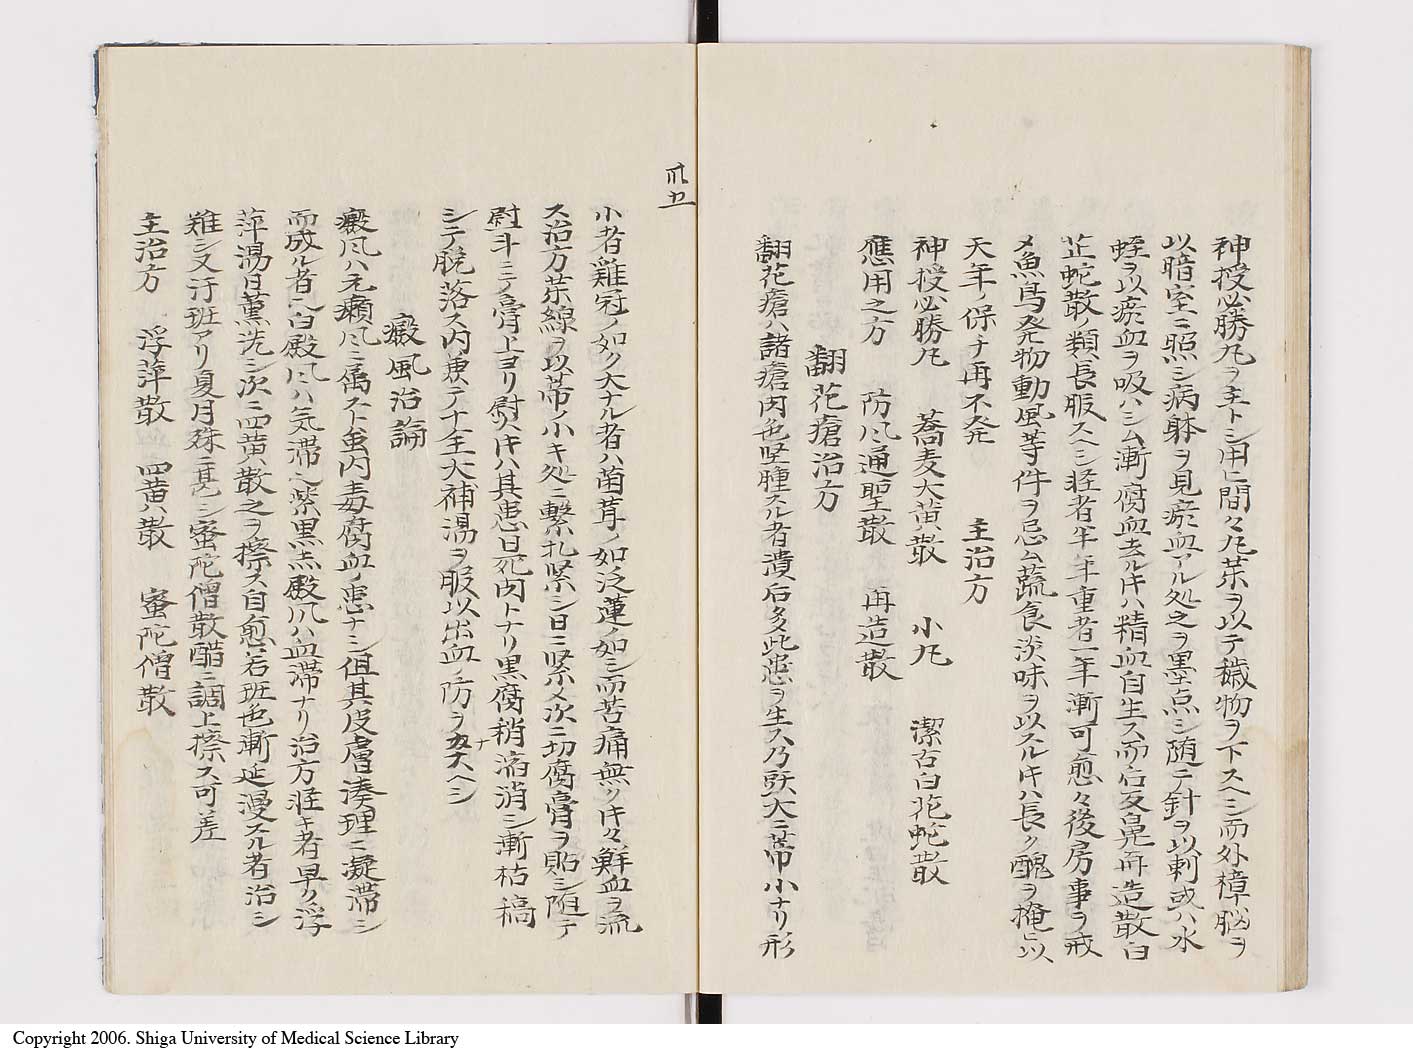 神授必勝凡ヲ主トシ用ヒ間々凡茶ヲ以テ穢物ヲ下スヘシ而外樟脳ヲ
以暗室ニ照シ病躰ヲ見瘀血アル処之ヲ墨点シ随テ針ヲ以刺或ハ水
蛭ヲ以瘀血ヲ吸ハシム漸腐血去ルキハ精血自生ス而后反鼻再造散白
芷蛇散ノ類長服スヘシ軽者半年重者一年漸可愈々後房事ヲ戒
メ魚鳥発物動風等件ヲ忌ム蔬食淡味ヲ以スルキハ長ク醜ヲ掩ヒ以
天年ノ保チ再不発 主治方
神授必勝凡 蕎麦大黄散 小凡 潔古白花蛇散
應用之方 防風通聖散 再造散
翻花瘡治方
翻花瘡ハ諸瘡肉色堅腫スル者潰后多此患ヲ生ス乃頭大ニ蒂小ナリ形
小者雞冠ノ如ク大ナル者ハ菌茸ノ如泛蓮ノ如シ而苦痛無ツキ々鮮血ヲ流
ス治方茶線ヲ以蒂ノ小キ処ニ繋扎緊シ日ニ緊メ次ニ切腐膏ヲ貼シ随テ
尉斗ニテ膏上ヨリ熨スキハ其患日死肉トナリ黒腐稍消シ漸枯稿
シテ脱落ス内兼テ十全大補湯ヲ服以出血ノ防ヲナスヘシ
癜風治論
癜風ハ元癩風ニ属スト虽内毒腐血ノ患ナシ但其皮膚湊理ニ凝滞シ
而成ル者也白殿風ハ気滞也紫黒赤殿風ハ血滞ナリ治方軽キ者早ク浮
萍湯日薫洗シ次ニ四黄散之ヲ擦ス自愈若班色漸延漫スル者治シ
難シ又汗班アリ夏月殊ニ甚シ蜜陀僧散醋ニ調上擦ス可差
主治方 浮萍散 四黄散 蜜陀僧散
Copyright 2006. Shiga University of Medical Science Library